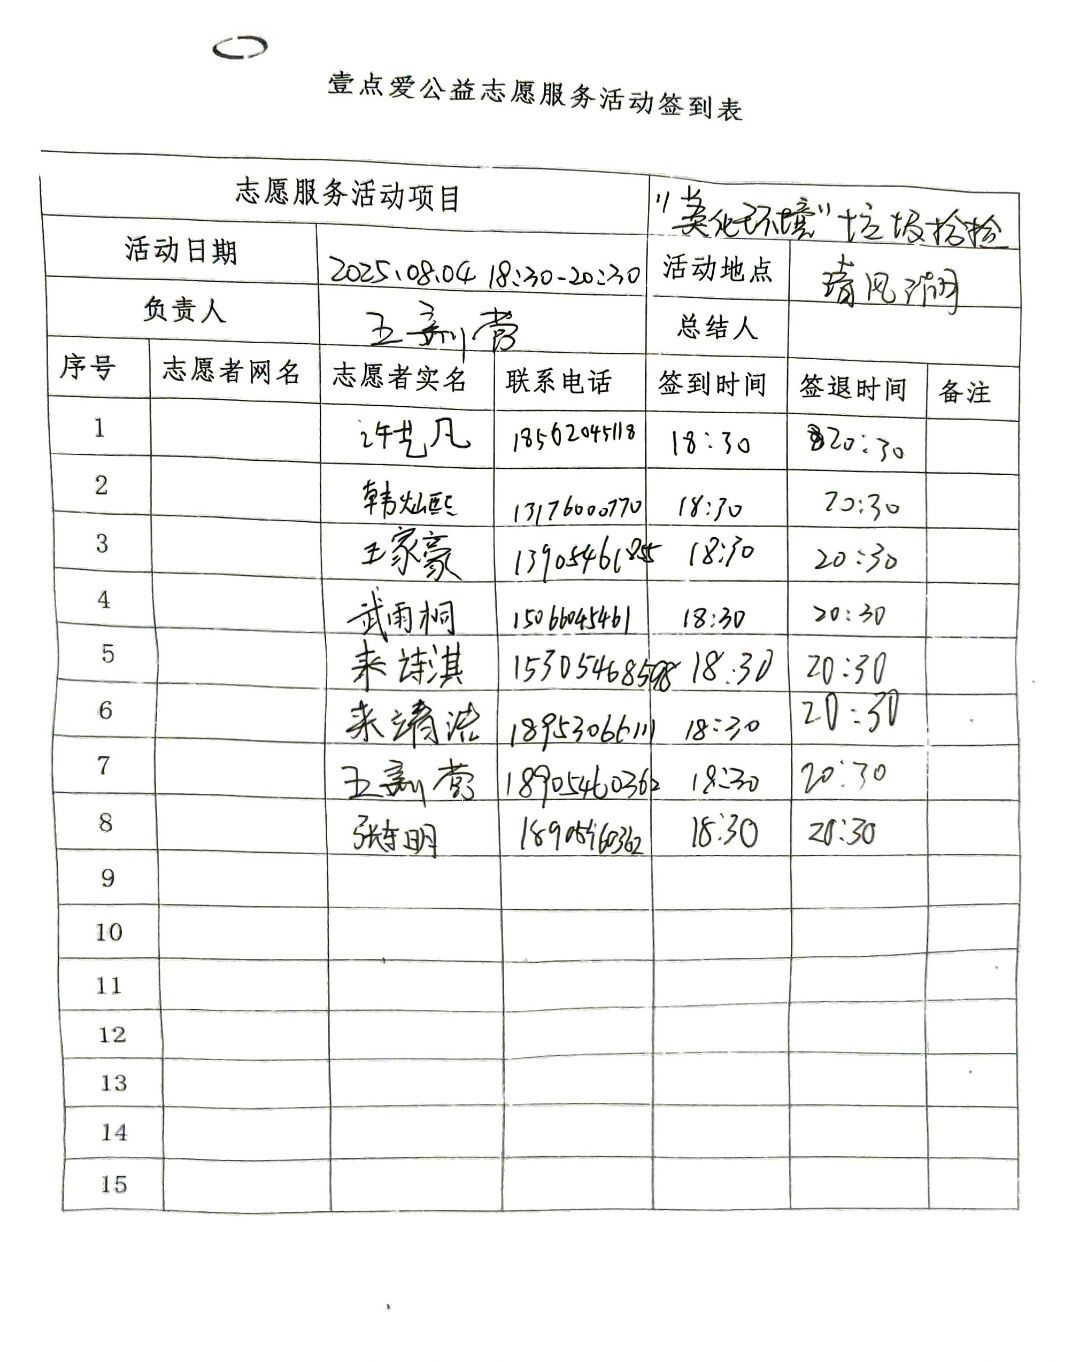 壹点爱公益志愿服务活动签到表
志愿服务活动项目 "美化环境"垃圾捡捡
活动日期 2025.08.04 18:30-20:30 活动地点 清风湖
负责人 总结人
序号 志愿者网名 志愿者实名 联系电话 签到时间 签退时间 备注
1 许艺凡 18562045118 18:30 20:30
2 韩灿熙 13176000770 18:30 20:30
3 王家豪 13905461855 18:30 20:30
4 武雨桐 15066045461 18:30 20:30
5 来诗淇 15305468598 18:30 20:30
6 来靖浩 18953066111 18:30 20:30
7 18905460362 18:30 20:30
8 张东明 18905460362 18:30 20:30
9
10
11
12
13
14
15